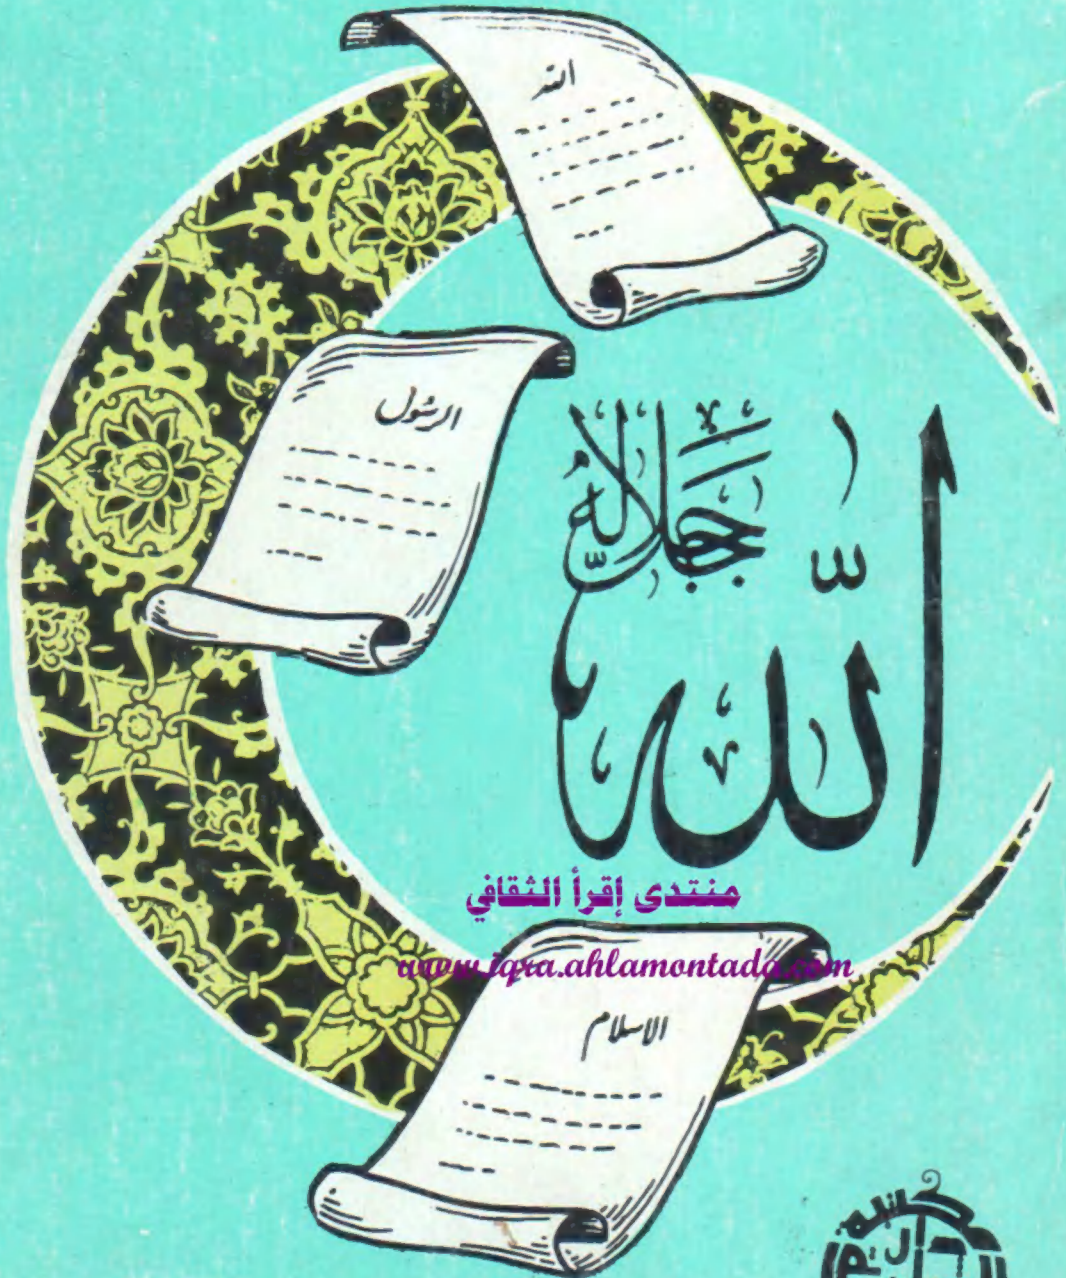 الله
الرسول
الله
جل جلاله
منتدى إقرأ الثقافي
www.iqra.ahlamontada.com
الاسلام